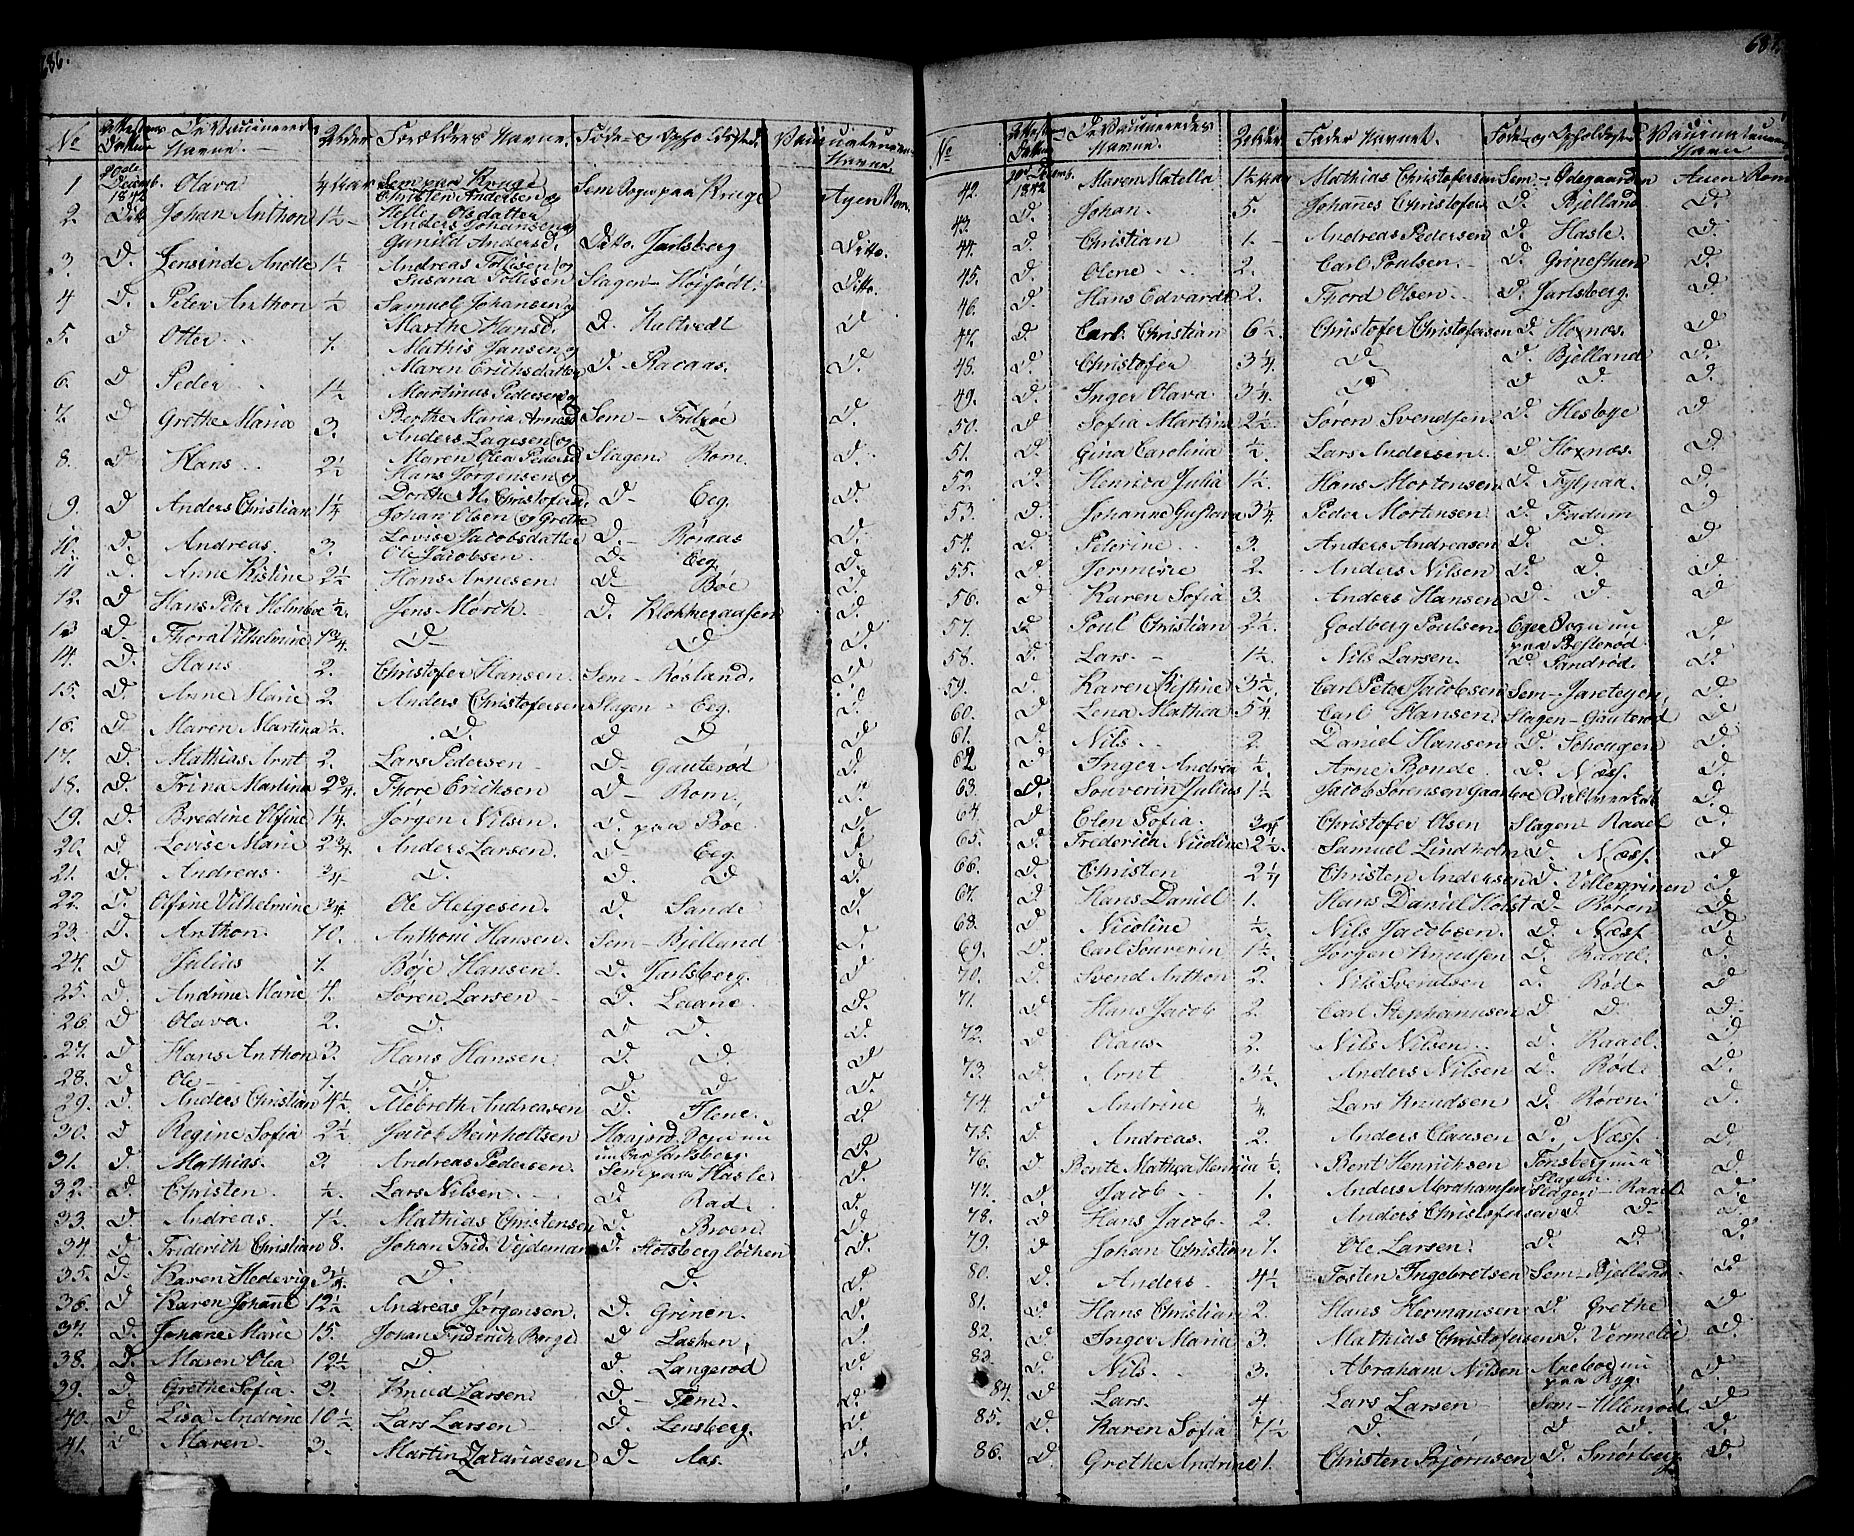 686.
No Attestens Datum De Vaccineredes Navne. Alder Forældres Navne. Føde- og Opholdssted. Vaccinateurens Navne.
1 20de Decemb. 1842 Olava ¼ Aar Sem paa Krøge Christen Andersen og Sem Sogn paa Krøge Agen Rom.
2. Dito Johan Anthon 1½ Anders Johansen og Gunild Andersd. Ditto. Jarlsberg Ditto.
3. D. Andreas Tollisen og Susana Tollisen Slagen Ditto.
4 D. Peter Anthon ½ Samuel Johansen og Marthe Hansd. D. D.
5. D Otter 1. Mathis Jansen og Maren Erichsdatter D. D.
6. D Peder 1½ Martinus Pedersen og
7. D Grethe Maria 3. Berthe Maria Arnesd Sem D.
8. D Hans 2½ Maren Olea Pedersd Slagen Rom. D.
Hans Jørgensen og
9. D Anders Christian 1¼ Dorthe M. Christofersd. D Eeg. D.
Johan Olsen og Grethe
10. D. Andreas. 3. Lovise Jacobsdatter D. Røraas D.
11 D. Anne Kistine 2½ Ole Jacobsen D Eeg. D.
12. D. Hans Peter Holmboe ½. Hans Arnesen D Bøe D.
13 D. Thora Vilhelmine 1¾ Jens Mørch D. Klokkeraasen D.
14. D. Hans. 2. Christofer Hansen. Sem Røsland. D.
15. D. Anne Marie 2. Anders Christofersen Slagen Eeg. D.
16. D Maren Martina ½. D. D D D.
17. D. Mathias Arnt 2. Lars Pedersen D. Gauterød D.
18. D. Trina Martina 2¾. Thore Erichsen D Rom. D.
19. D. Bredine Olfine 1¼. Jørgen Nilsen. D. paa Bøe D.
20. D. Lovise Marie 2¾. Anders Larsen. D Eeg. D
21. D. Andreas. ¾ D. D. D D.
22. D. Olfine Vilhelmine ¾. Ole Helgesen. D. Sande D.
23. D. Anthon. 10. Anthoni Hansen. Sem Bjelland D.
24. D Julius 1. Bøje Hansen. D. Jarlsberg. D.
25. D Andrine Marie 4. Søren Larsen D. Laane. D.
26 D Olava. 2. D. D D. D.
27. D. Hans Anthon 3. Hans Hansen D. D D.
28. D Ole 1. D. D D D.
29. D. Anders Christian 4½ Alebreth Andreasen D. Ilene. D.
30. D Regine Sofia 2½ Jacob Reinholtsen Jarlsberg. D.
31. D. Mathias. 3. Andreas Pedersen. Sem paa Hasle D.
32. D. Christen ½. Lars Nilsen. D Rad. D.
33. D. Andreas. 1½. Mathias Christensen D. Broen D.
34. D. Friderich Christian 8. Johan Frid. Vejdeman D. Slotsberg løchen D.
35. D. Karen Hedevig 3¼. D. D. D.
36. D Karen Johane 12½ Andreas Jørgensen. D. Grinen. D.
37. D. Johane Marie 15. Johan Friderich Borge D D.
38. D. Maren Olea 12½ D D. Langerød D.
39. D. Grethe Sofia. 3. Knud Larsen D Tem. D.
40. D. Lisa Andrine 10½ Lars Larsen D. Lensberg. D.
41. D Maren. 3. Martin Zachriasen D. Aas. D.
687.
No Attestens Datum De Vaccineredes Navne. Alder Fader Navnet. Føde- og Opholdssted Vaccinateurens Navn
42. 20de Decemb. 1842 Maren Matella 1½ Aar Mathias Christofersen Sem Ødegaarden Auen Rom
43. D. Johan. 5. Johanes Christofersen D. Bjelland D.
44. D. Christian 1. Andreas Pedersen D. Hasle. D.
45. D. Olene 2. Carl Poulsen. D. D.
46. D. Hans Edvardt 2. Thord Olsen D. Jarlsberg. D.
47. D. Carl Christian 6½. Christofer Christofersen D. Hoxnæs. D.
48. D. Christofer 3¼. D D. Bjelland D.
49. D. Inger Olava 3¼. D D D. D.
50. D. Sofia Martina 2½ Søren Svendsen D. Hesbye D.
51. D. Gina Carolina ½. Lars Andersen. D. Hoxnæs. D.
52. D. Henrica Julia 1½ Hans Mortensen D. Fylpaa. D.
53. D. Johanne Gustava 3¼. Peder Mortensen D. Fadum D
54. D. Peterine 3. Anders Andreasen D. D. D
55. D. 2. Anders Nilsen D. D. D.
56. D. Karen Sofia 3. Anders Hansen D. D. D.
57. D. Poul Christian 2½. Godberg Poulsen. D.
58. D. Lars. 1½. Nils Larsen. D. Sandrød. D.
59. D. Karen Kistine 3½. Carl Peter Jacobsen Sem Jaretegen D.
60. D. Lena Mathea 5¼ Carl Hansen Slagen Gauterød D.
61. D. Nils. 2. Daniel Hansen D. Schougen D.
62 D. Inger Andrea ½. Arne Bonde. D. Næss. D.
63. D. Souverin Julius 1½ Jacob Sørensen D.
64. D. Elen Sofia. ¾ Christofer Olsen Slagen Raael D.
65. D. Frederica Nicoline 2½. Samuel Lindholm D. Næss. D
66. D. Christen 2¼ Christen Andersen D. Vellegrinen D.
67. D. Hans Daniel 1. Hans Daniel Holst D Røren D.
68. D. Nicoline ½. Nils Jacobsen. D. Næss D.
69. D. Carl Souverin 1½ Jørgen Knudsen D Raael. D.
70. D. Svend Anthon 2. Nils Svendsen D. Rød. D.
71. D. Hans Jacob 2. Carl Stephanusen D. D. D.
72. D. Olaus. 2. Nils Nilsen D. Raael. D.
73. D. Arnt 3½. Anders Nilsen D. Rød. D.
74. D. Andrine ¼. Lars Knudsen D. Røren. D.
75. D. Andreas. 2. Anders Clausen D. Næss. D.
76. D. Bente Mathea Henrica ½. Bent Henrichsen Tønsberg nu i Slagen D.
77. D. Jacob 1. Anders Abrahamsen Slagen Raael D.
78. D. Hans Jacob. 2. Anders Christofersen D D. D.
79. D Johan Christian 1. Ole Larsen. D. D. D.
80. D. Anders. 4½ Tosten Ingebretsen Sem Bjelland. D
81. D. Hans Christian 2. Hans Hermansen D. Grethe D.
82. D. Inger Maria 3. Mathias Christofersen D. Vermelie D.
83. D. Nils. 3. Abraham Nilsen D.
84. D. Lars. 4 Lars Larsen Sem Ullenrød D.
85. D. Karen Sofia 7½ D. D D. D.
86. D. Grethe Andrine 1. Christen Bjørnsen D. Smørberg D.